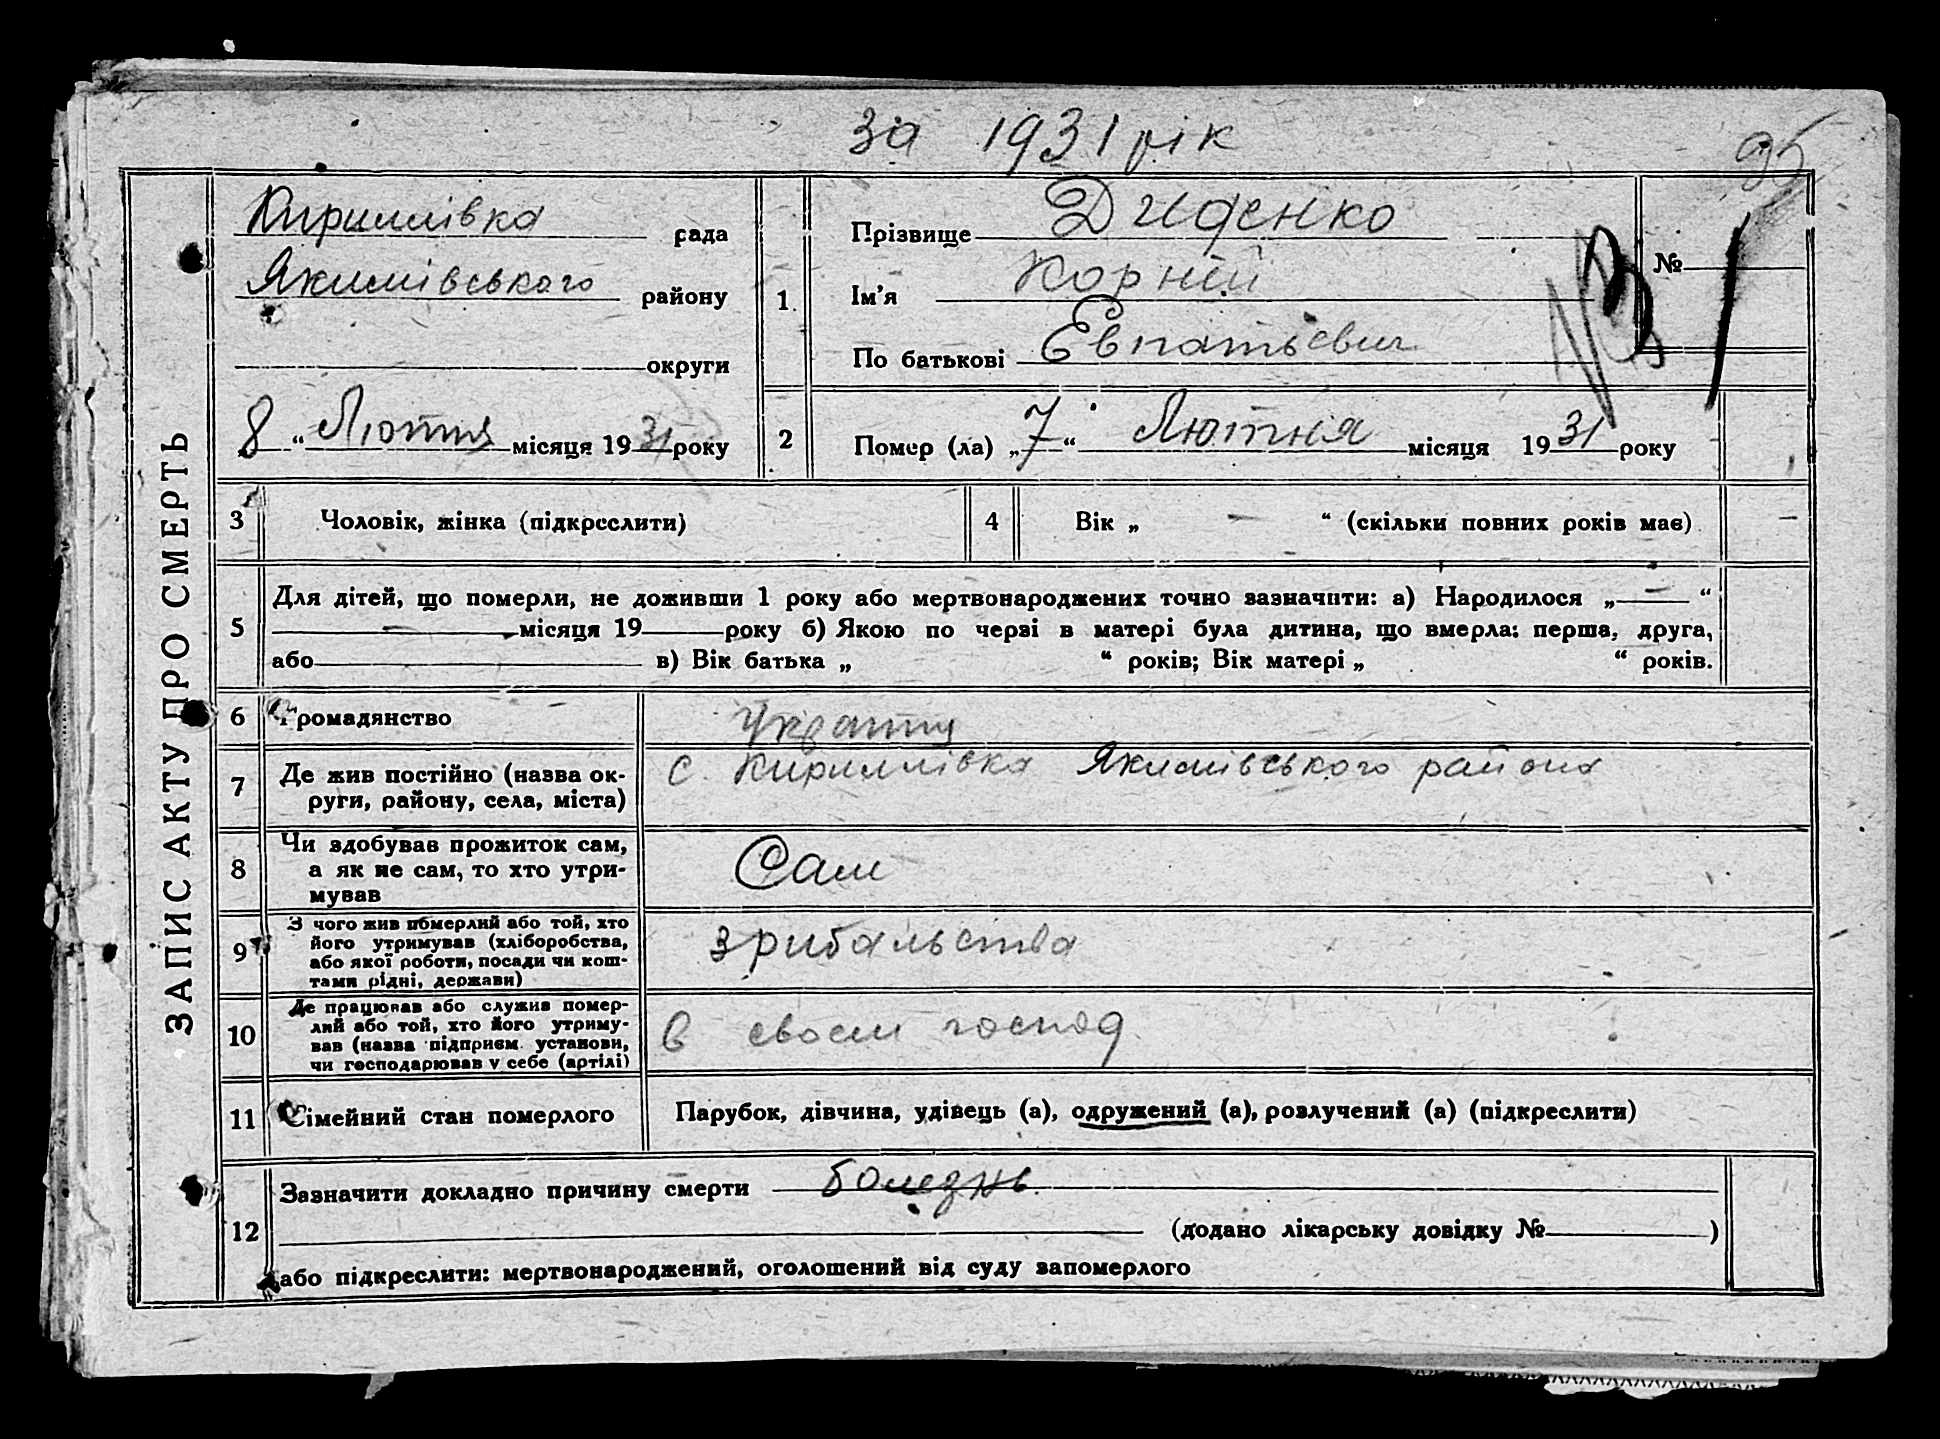 за 1931 рік
95
ЗАПИС АКТУ ПРО СМЕРТЬ
Кириллівка рада
Якимівського району
округи
8 " Лютня місяця 1931 року
1 Прізвище Диденко
Ім'я Корній
По батькові Евпатьевич
№ 1
2 Помер (ла) „7" Лютня місяця 1931 року
3 Чоловік, жінка (підкреслити)
4 Вік „ — " (скільки повних років має)
5 Для дітей, що померли, не доживши 1 року або мертвонароджених точно зазначити: а) Народилося „ — "
— місяця 19 року б) Якою по черзі в матері була дитина, що вмерла: перша, друга,
або в) Вік батька „ " років; Вік матері „ " років.
6 Громадянство
7 Де жив постійно (назва ок-
руги, району, села, міста)
с. Кириллівка Якимівського района
8 Чи здобував прожиток сам,
а як не сам, то хто утри-
мував
Сам
9 З чого жив померлий або той, хто
його утримував (хліборобства,
або якої роботи, посади чи кош-
тами рідні, держави)
з рибальства
10 Де працював або служив помер-
лий або той, хто його утриму-
вав (назва підприєм. установи,
чи господарював у себе (артілі)
в своем господ
11 Сімейний стан померлого
Парубок, дівчина, удівець (а), одружений (а), розлучений (а) (підкреслити)
12 Зазначити докладно причину смерти болезнь
(додано лікарську довідку № )
або підкреслити: мертвонароджений, оголошений від суду запомерлого